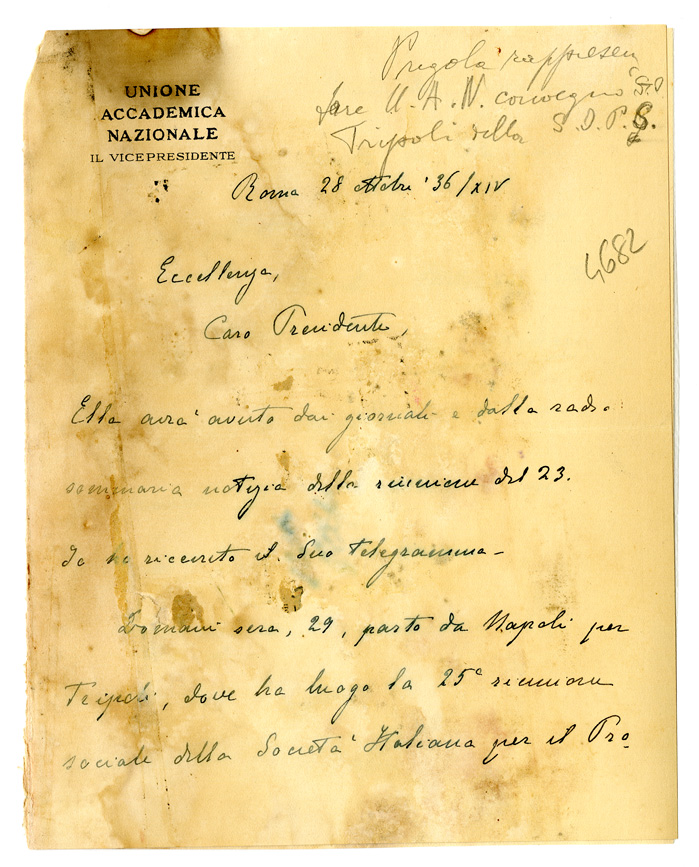 UNIONE
ACCADEMICA
NAZIONALE
IL VICEPRESIDENTE
Pregola rappresen
tare U. A. N. convegno
Tripoli della S. I. P. S.
Roma 28 ottobre '36/XIV
4682
Eccellenza,
Caro Presidente,
Ella avrà avuto dai giornali e dalla radio
sommaria notizia della riunione del 23.
Io ho ricevuto il Suo telegramma -
Domani sera, 29, parto da Napoli per
Tripoli, dove ha luogo la 25ª riunione
sociale della Società Italiana per il Pro